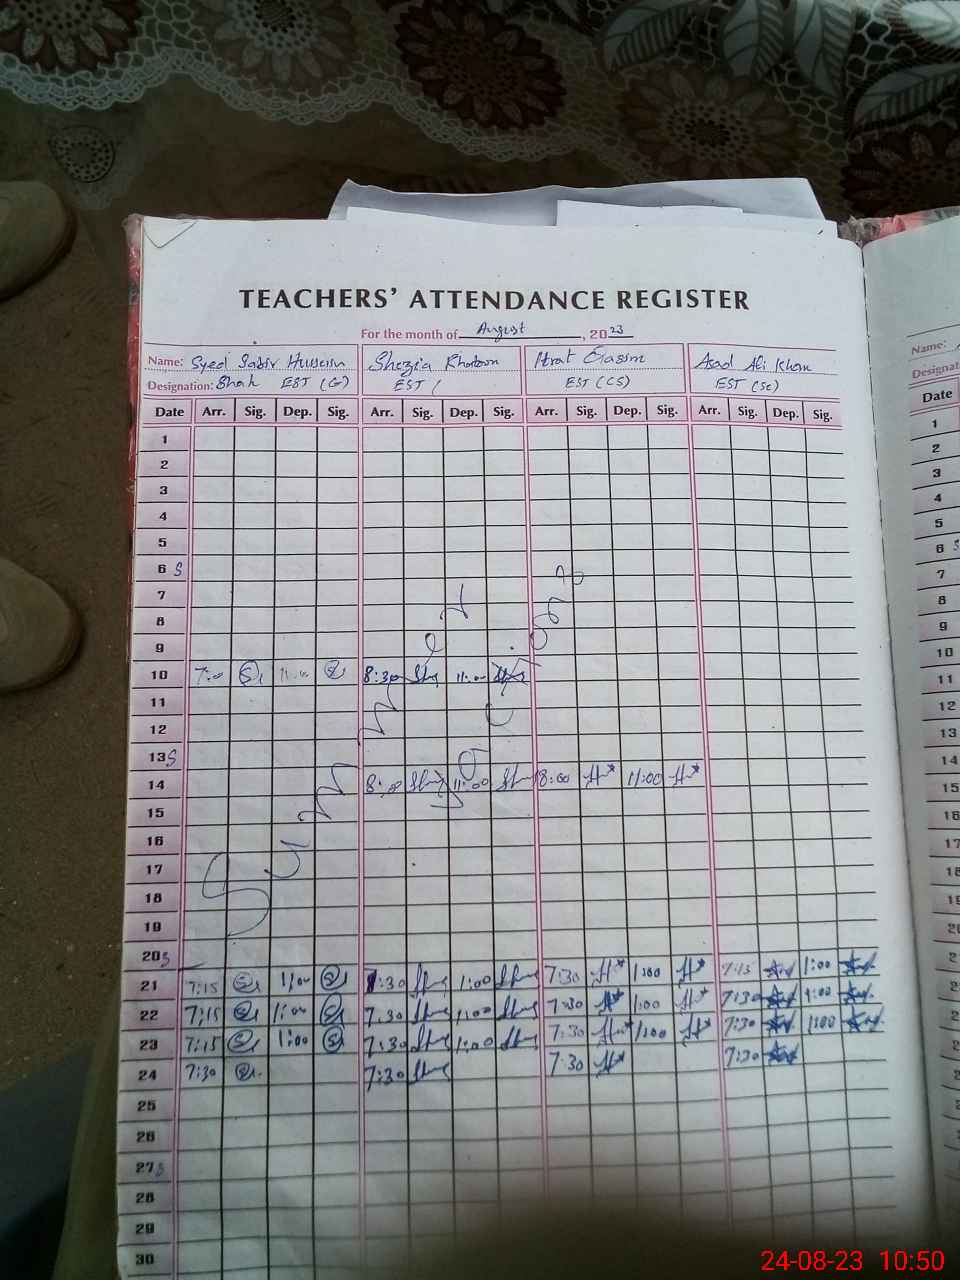 TEACHERS' ATTENDANCE REGISTER
For the month of August, 2023
Name: Syed Sabir Hussain Shazia Khatoon Asad Ali Khan Name:
Designation: Shah EST (G) EST EST (CS) EST (SC)
Date Arr. Sig. Dep. Sig. Arr. Sig. Dep. Sig. Arr. Sig. Dep. Sig. Arr. Sig. Dep. Sig. Date
1 1
2 2
3 3
4 4
5 5
6 S 6 S
7 7
8 8
9 9
10 7:00 11:00 8:30 11:00 10
11 11
12 12
13 S 13
14 8:00 11:00 8:00 11:00 14
15 15
16 16
17 17
18 18
19
20 S
21 7:15 1:00 7:30 1:00 7:30 1:00 7:15 1:00
22 7:15 1:00 7:30 1:00 7:30 1:00 7:30 1:00
23 7:15 1:00 7:30 1:00 7:30 1:00 7:30 1:00
24 7:30 7:30 7:30 7:30
25
26
27 S
28
29
30
Summer
24-08-23 10:50